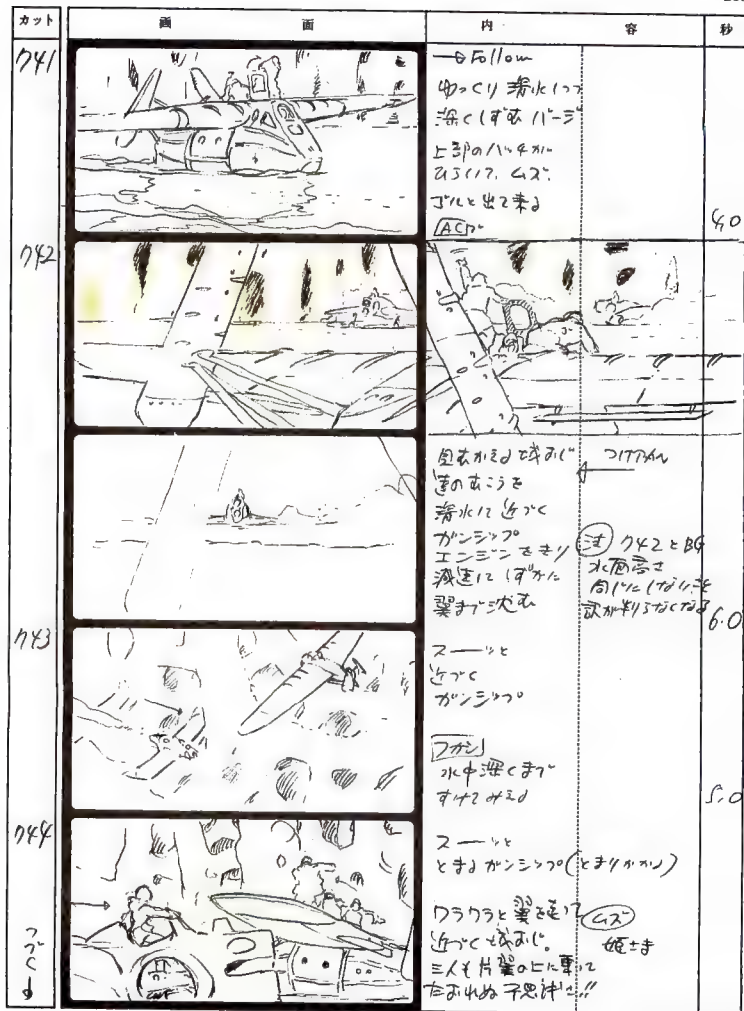 カット
画 面
内 容
秒
741
→ Follow
ゆっくり 滑水しつつ
深くしずむ バージ
上部のハッチが
ひらいて、ムズ、
ゴルと出て来る
4.0
742
見むかえる 城おじ
達のむこうを
滑水して 近づく
ガンシップ
エンジンをきり
減速して しずかに
翼まで沈む
つけPAN
注 742とBG
水面高さ
同じにしないと
訳が判らなくなる
6.0
743
スーッと
近づく
ガンシップ
フカン
水中深くまで
すけてみえる
5.0
744
スーッと
とまる ガンシップ(とまりかかる)
ワラワラと 翼を走って
近づく 城おじ。
三人も片翼の上に乗って
たおれぬ 不思議さ!!
ムズ
姫さま
つづく